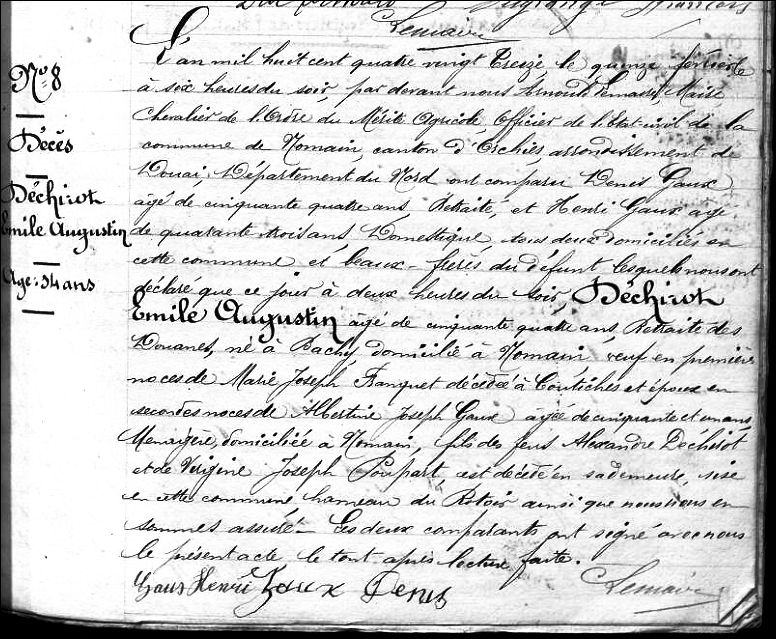 Lemaire
N° 8
Décès
Déchirot
Emile Augustin
Age: 54 ans
L'an mil huit cent quatre vingt treize le quinze février
à six heures du soir, par devant nous Lemaire, Maire
Chevalier de l'Ordre du Mérite Agricole, Officier de l'Etat-civil de la
commune de Nomain, canton d'Orchies, arrondissement de
Douai, Département du Nord ont comparu Denis Gaux
âgé de cinquante quatre ans, Retraité, et Henri Gaux âgé
de quarante trois ans, Domestique, tous deux domiciliés en
cette commune et beaux-frères du défunt lesquels nous ont
déclaré que ce jour à deux heures du soir, Déchirot
Emile Augustin âgé de cinquante quatre ans, Retraité des
Douanes, né à Bachy, domicilié à Nomain, veuf en première
noces de Marie Joseph Franquet décédée à Coutiches et époux en
secondes noces de Albertine Joseph Gaux âgée de cinquante et un ans
Menagère, domiciliée à Nomain, fils des feus Alexandre Dechirot
et de Virginie Joseph Poupart, est décédé en sa demeure, sise
en cette commune, hameau du Rotoir ainsi que nous nous en
sommes assuré. Les deux comparants ont signé avec nous
le présent acte le tout après lecture faite.
Gaux Henri Gaux Denis Lemaire